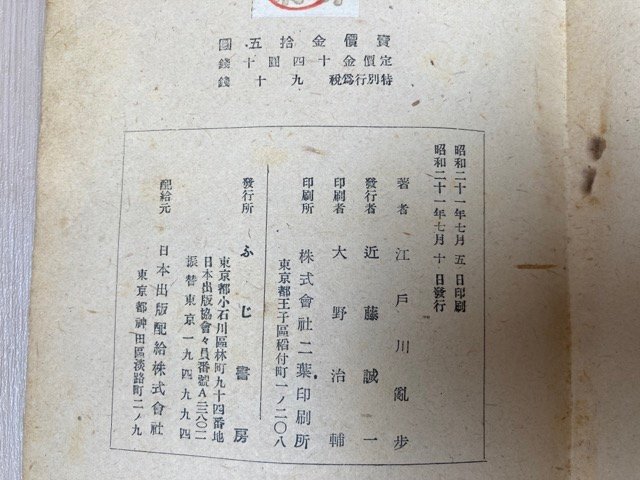 賣價金拾五圓
定價金十四圓十錢
特別行爲稅九十錢
昭和二十一年七月五日印刷
昭和二十一年七月十日發行
著者 江戶川亂步
發行者 近藤誠一
印刷者 大野治輔
印刷所 株式會社二葉印刷所
東京都王子區稻付町一ノ二〇八
發行所 ふじ書房
東京都小石川區林町九十四番地
日本出版協會々員番號
振替東京一九四九九四
配給元 日本出版配給株式會社
東京都神田區淡路町二ノ九